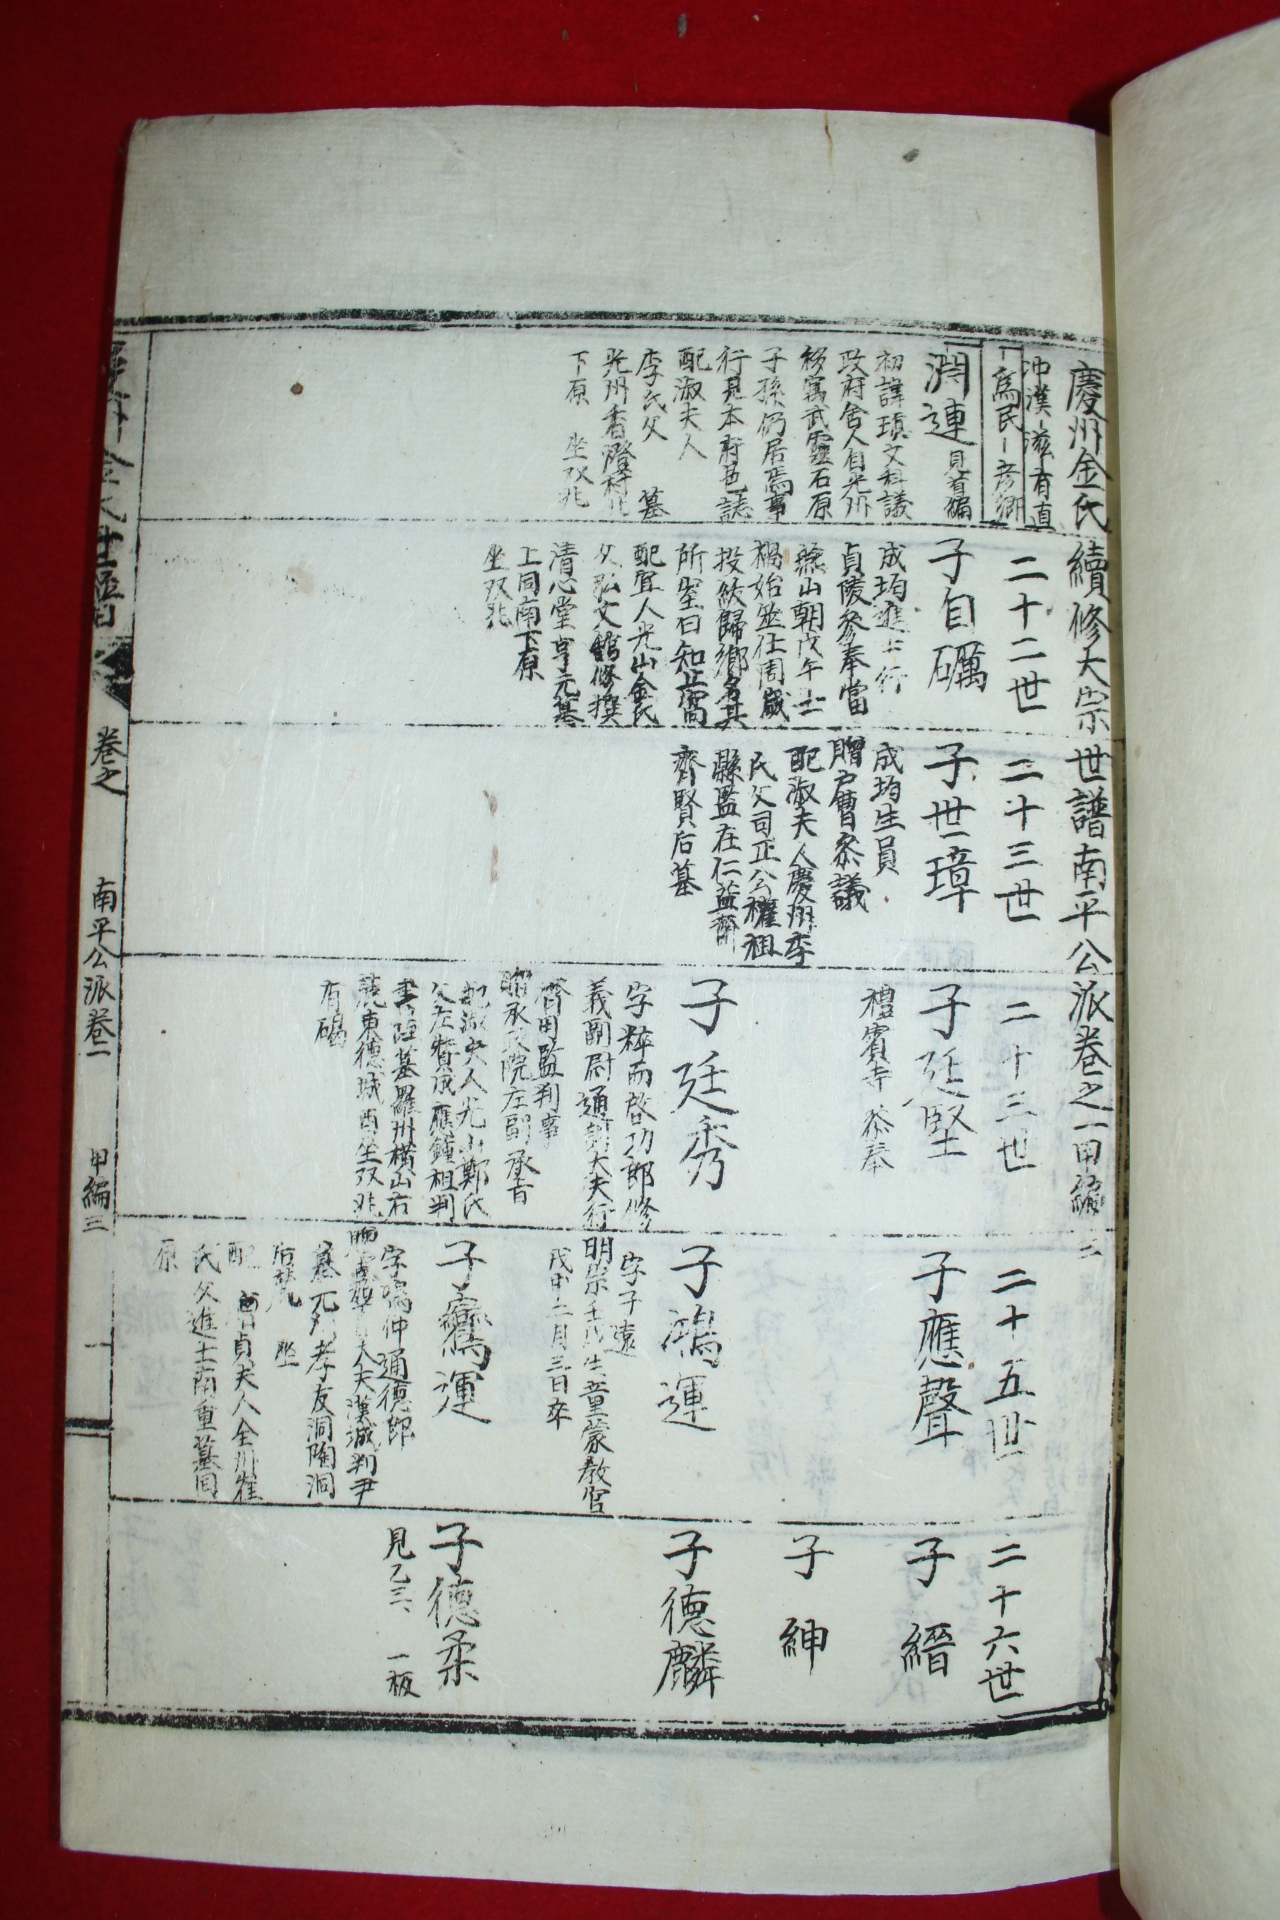 慶州金氏續修大宗世譜南平公派卷之一甲編
冲漢-滋-有直
-爲民-彦鄉
潤連見首編
初諱瑱文科議
政府舍人自光州
移寓武靈石原
子孫仍居焉事
行見本府邑誌
配淑夫人
李氏父 墓
光州香澄村
下原 坐双兆
二十二世
子自礪
成均進士行
貞陵參奉當
燕山朝戊午士
禍始並仕周歲
投紱歸鄉名其
所室曰知止窩
配宜人光山金氏
父弘文館修撰
清心堂亨元墓
上同南下原
坐双兆
二十三世
子世璋
成均生員
贈戶曹參議
配淑夫人慶州李
氏父司正公權祖
縣監在仁益齋
齊賢后墓
二十三世
子廷堅
禮賓寺參奉
子廷秀
字粹而啓功郎修
義副尉通訓大夫行
濟用監判事
贈承政院左副承旨
配淑夫人光山鄭氏
父左贊成應鐘祖判
書陲墓羅州橫山右
麓東德城酉坐双兆
有碣
二十五世
子應聲
子鴻運
字子遠
明宗壬戌生童蒙教官
戊申二月三日卒
子鶱運
字鳴仲通德郎
墓元列孝友洞陶洞
后麓 坐
配 貞夫人全州崔
氏父進士南重墓同
原
二十六世
子縉
子紳
子德麟
子德柔
見乙三、一板
卷之 南平公派卷一 甲編三 一